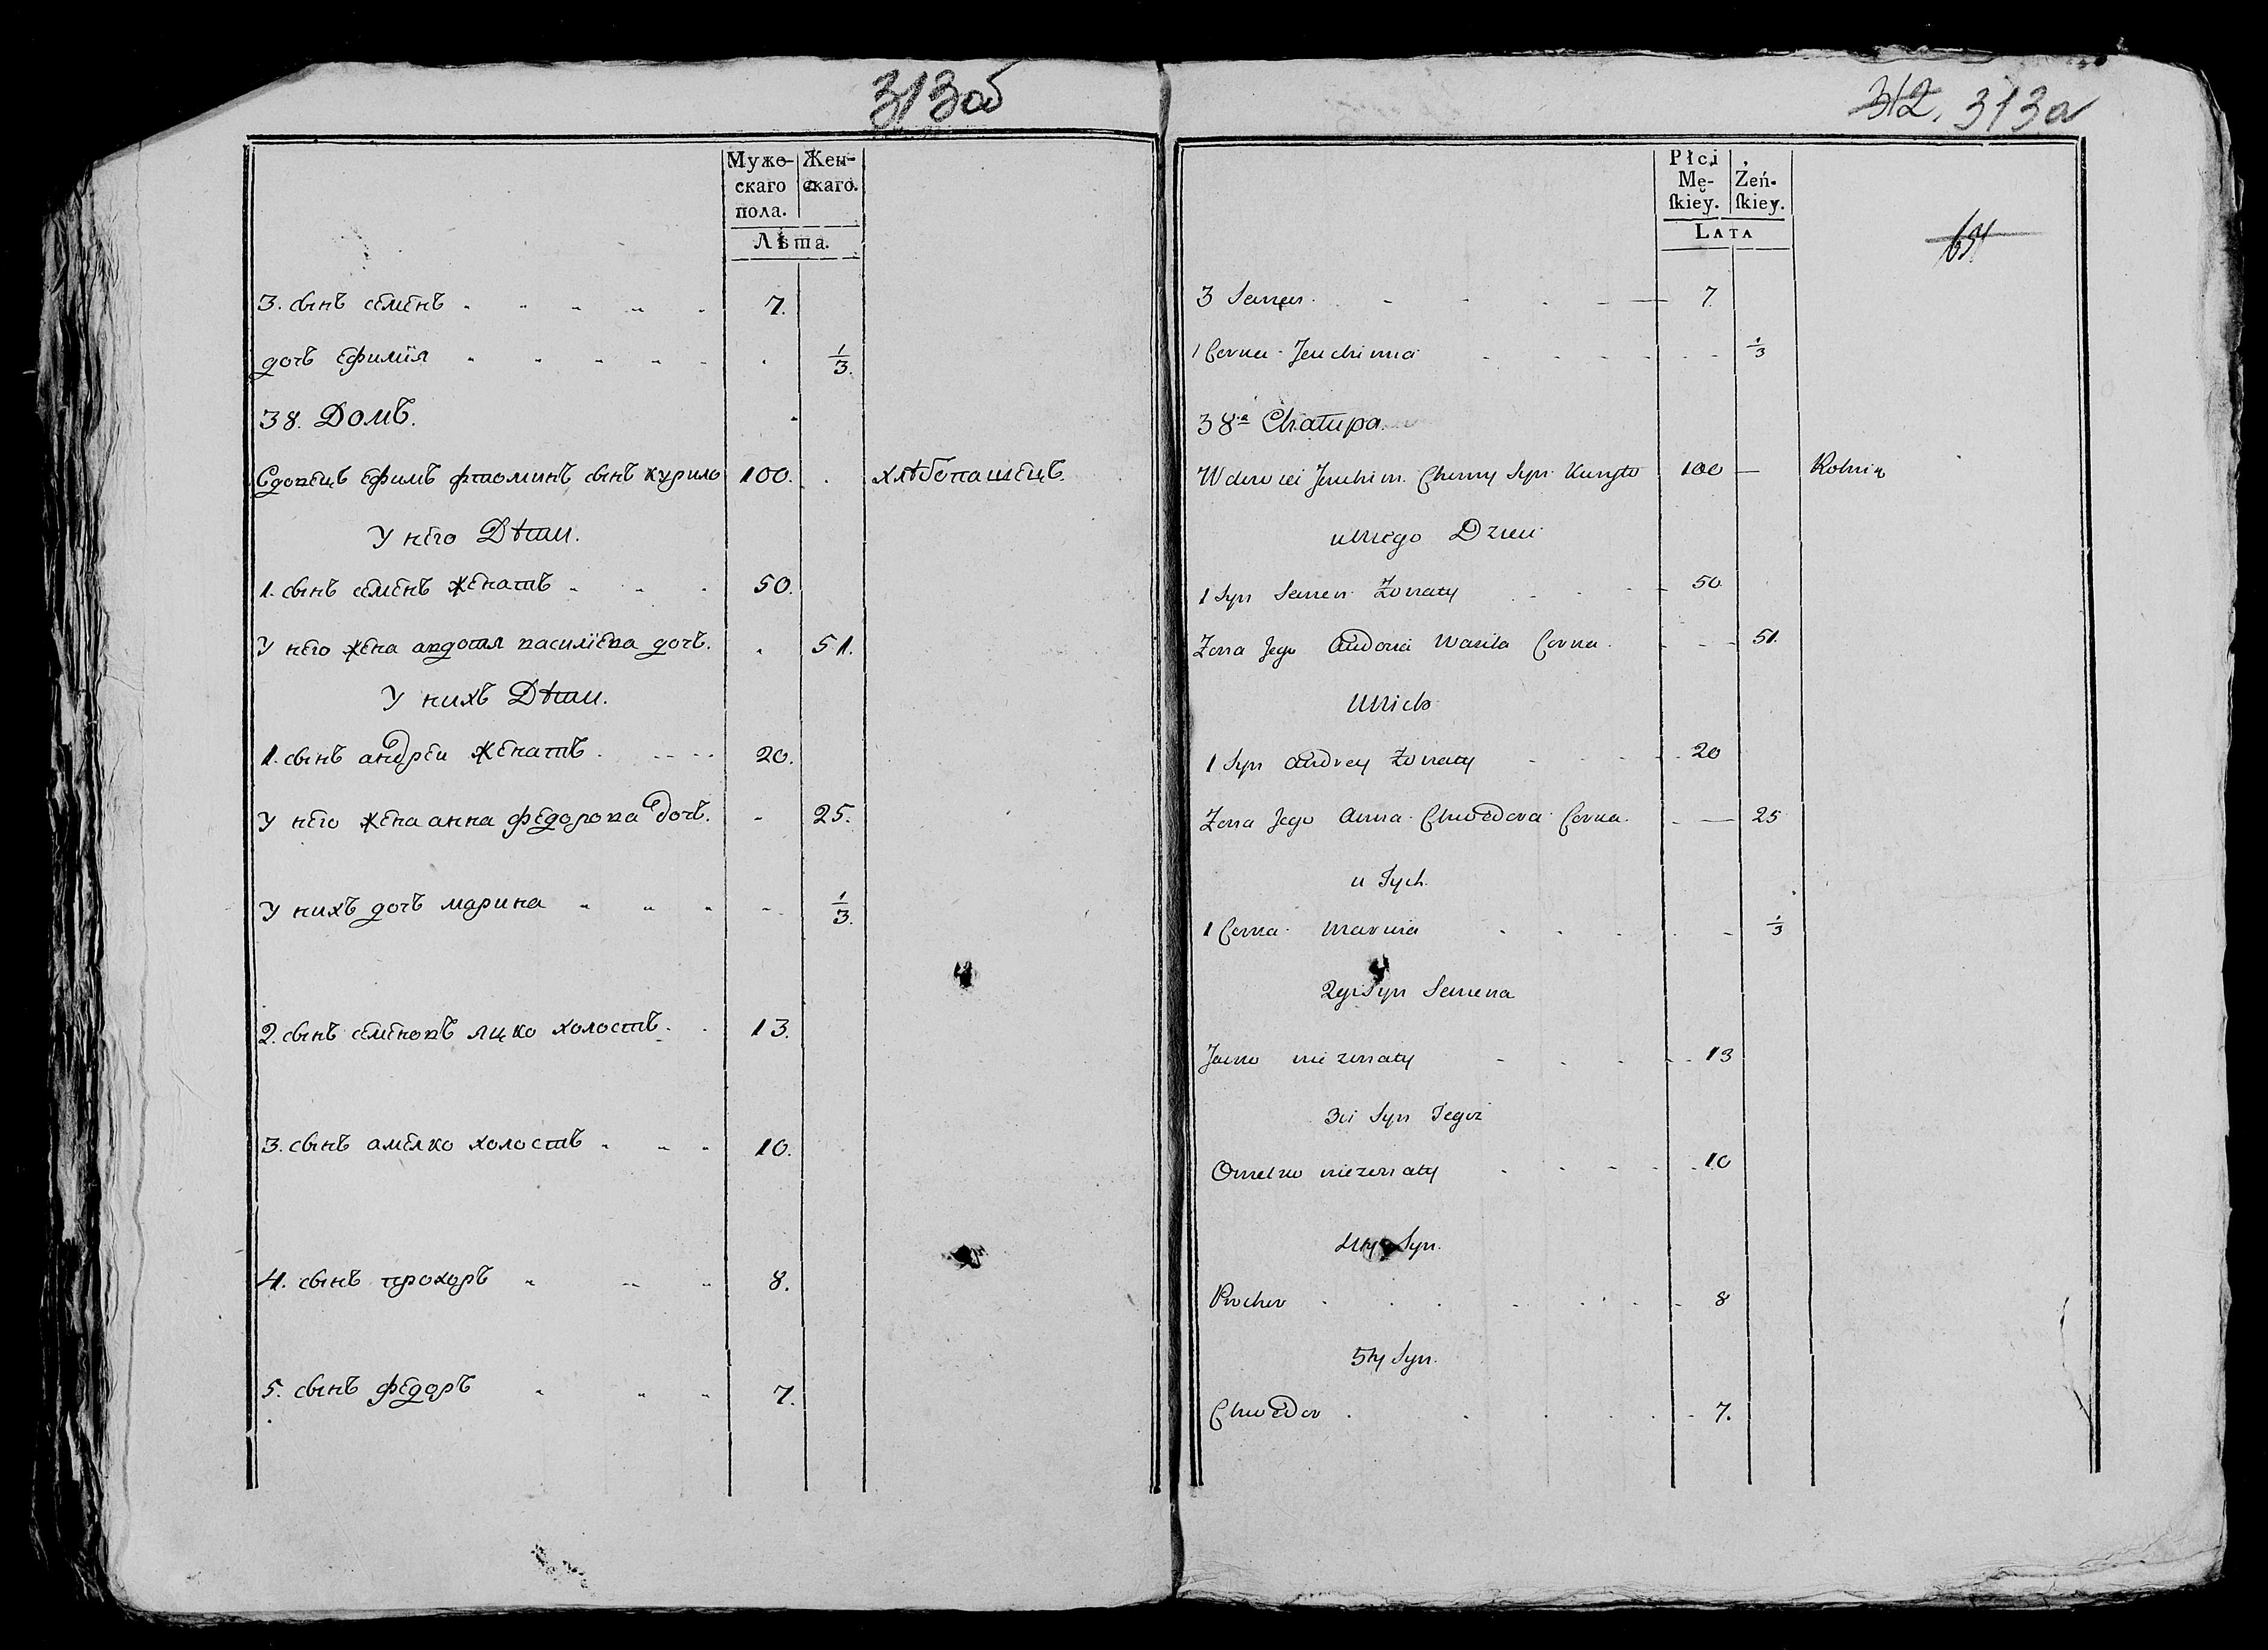 313об
Мужескаго пола.
Женскаго.
Лѣта.
3. сынъ семенъ 7.
дочь ефимїя 1/3.
38. Домъ.
Вдовецъ ефимъ фтоминъ сынъ курило 100. хлѣбопашецъ.
У него Дѣти.
1. сынъ семенъ женатъ 50.
У него жена авдотя василїева дочь. 51.
У нихъ Дѣти.
1. сынъ андреи женатъ 20.
У него жена анна федорова дочь. 25.
У нихъ дочь марина 1/3.
2. сынъ семеновъ яцко холостъ. 13.
3. сынъ амелко холостъ 10.
4. сынъ прохоръ 8.
5. сынъ федоръ 7.
312. 313а
Płci Mę-
skiey.
Żeń-
skiey.
LATA
3 Semen 7.
1 Corka Jeuchimia 1/3
38a Chałupa.
Wdowiec Jeuchim Chomy Syn Kuryło 100 — Rolnik
u niego Dzieci
1 Syn Semen Żonaty 50
Żona Jego Audocia Wasila Corka. 51.
U Nich
1 Syn Audrey Żonaty 20
Żona Jego Anna Chwedora Corka. 25
u Tych
1 Corka Maryna 1/3
2gi Syn Semena
Jacko nie zonaty 13
3ci Syn Tegoż
Omelko niezonaty 10
4ty Syn.
Prochor 8
5ty Syn.
Chwedor 7.